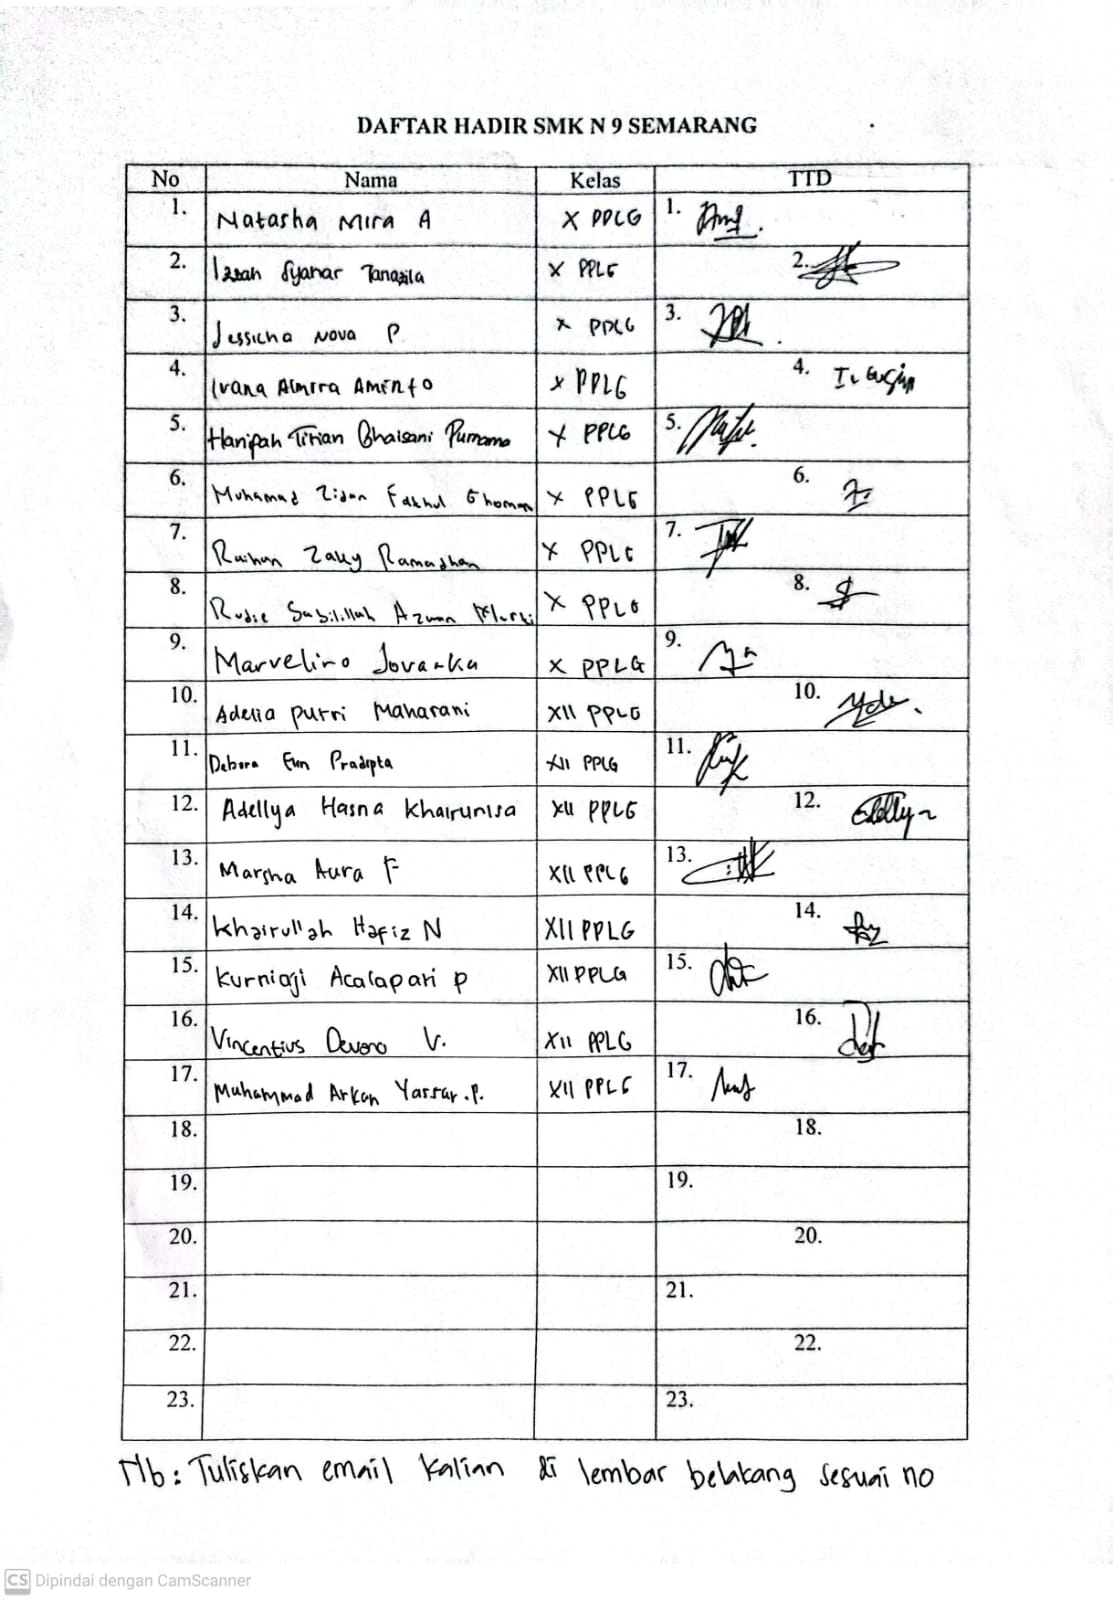 DAFTAR HADIR SMK N 9 SEMARANG
No Nama Kelas TTD
1. Natasha Mira A X PPLG 1.
2. Izzah Syahar Tanazila X PPLG 2.
3. Jessicha Nova P. X PPLG 3.
4. Ivana Almira Aminto X PPLG 4.
5. Hanifah Titian Ghaisani Purnama X PPLG 5.
6. Muhamad Zidan Fakhul X PPLG 6.
7. Raihan Zaky Ramadhan X PPLG 7.
8. Sabilillah Azwan X PPLG 8.
9. Marvelino Jovanka X PPLG 9.
10. Adelia Putri Maharani XII PPLG 10.
11. Debora Eun Pradipta XII PPLG 11.
12. Adellya Hasna Khairunisa XII PPLG 12.
13. Marsha Aura F XII PPLG 13.
14. Khairullah Hafiz N XII PPLG 14.
15. Kurniaji Acalapati P XII PPLG 15.
16. Vincentius Devono V. XII PPLG 16.
17. Muhammad Arkan Yassar.P. XII PPLG 17.
18. 18.
19. 19.
20. 20.
21. 21.
22. 22.
23. 23.
Nb: Tuliskan email kalian di lembar belakang sesuai no
CS Dipindai dengan CamScanner